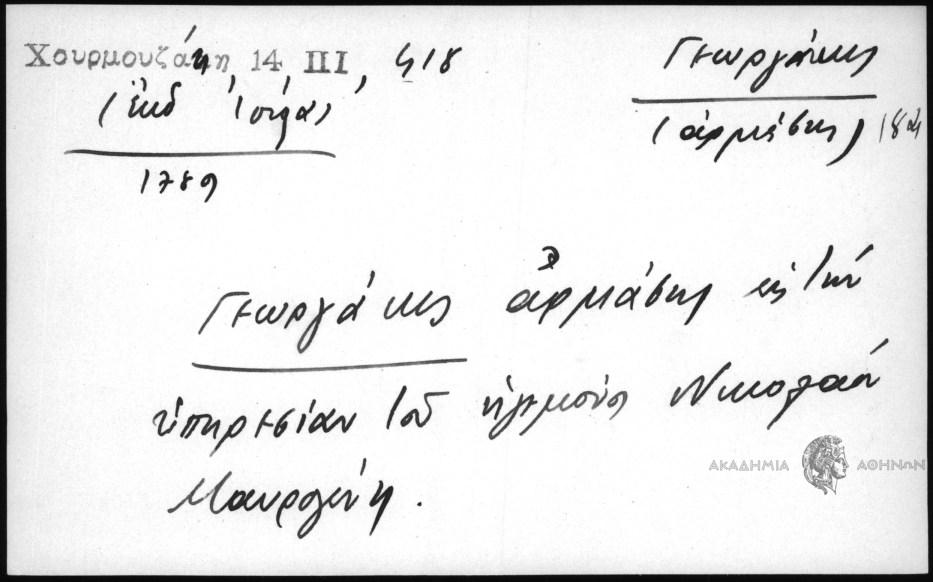 Χουρμουζάκη 14 III, 418
(ἐκδ Ἰόργα)
1789
Γεωργάκης
(ἀρμάσης) 18
Γεωργάκης ἀρμάσης εἰς τὴν
ὑπηρεσίαν τοῦ ἡγεμόνος Νικολάου
Μαυρογένη.
ΑΚΑΔΗΜΙΑ ΑΘΗΝΩΝ